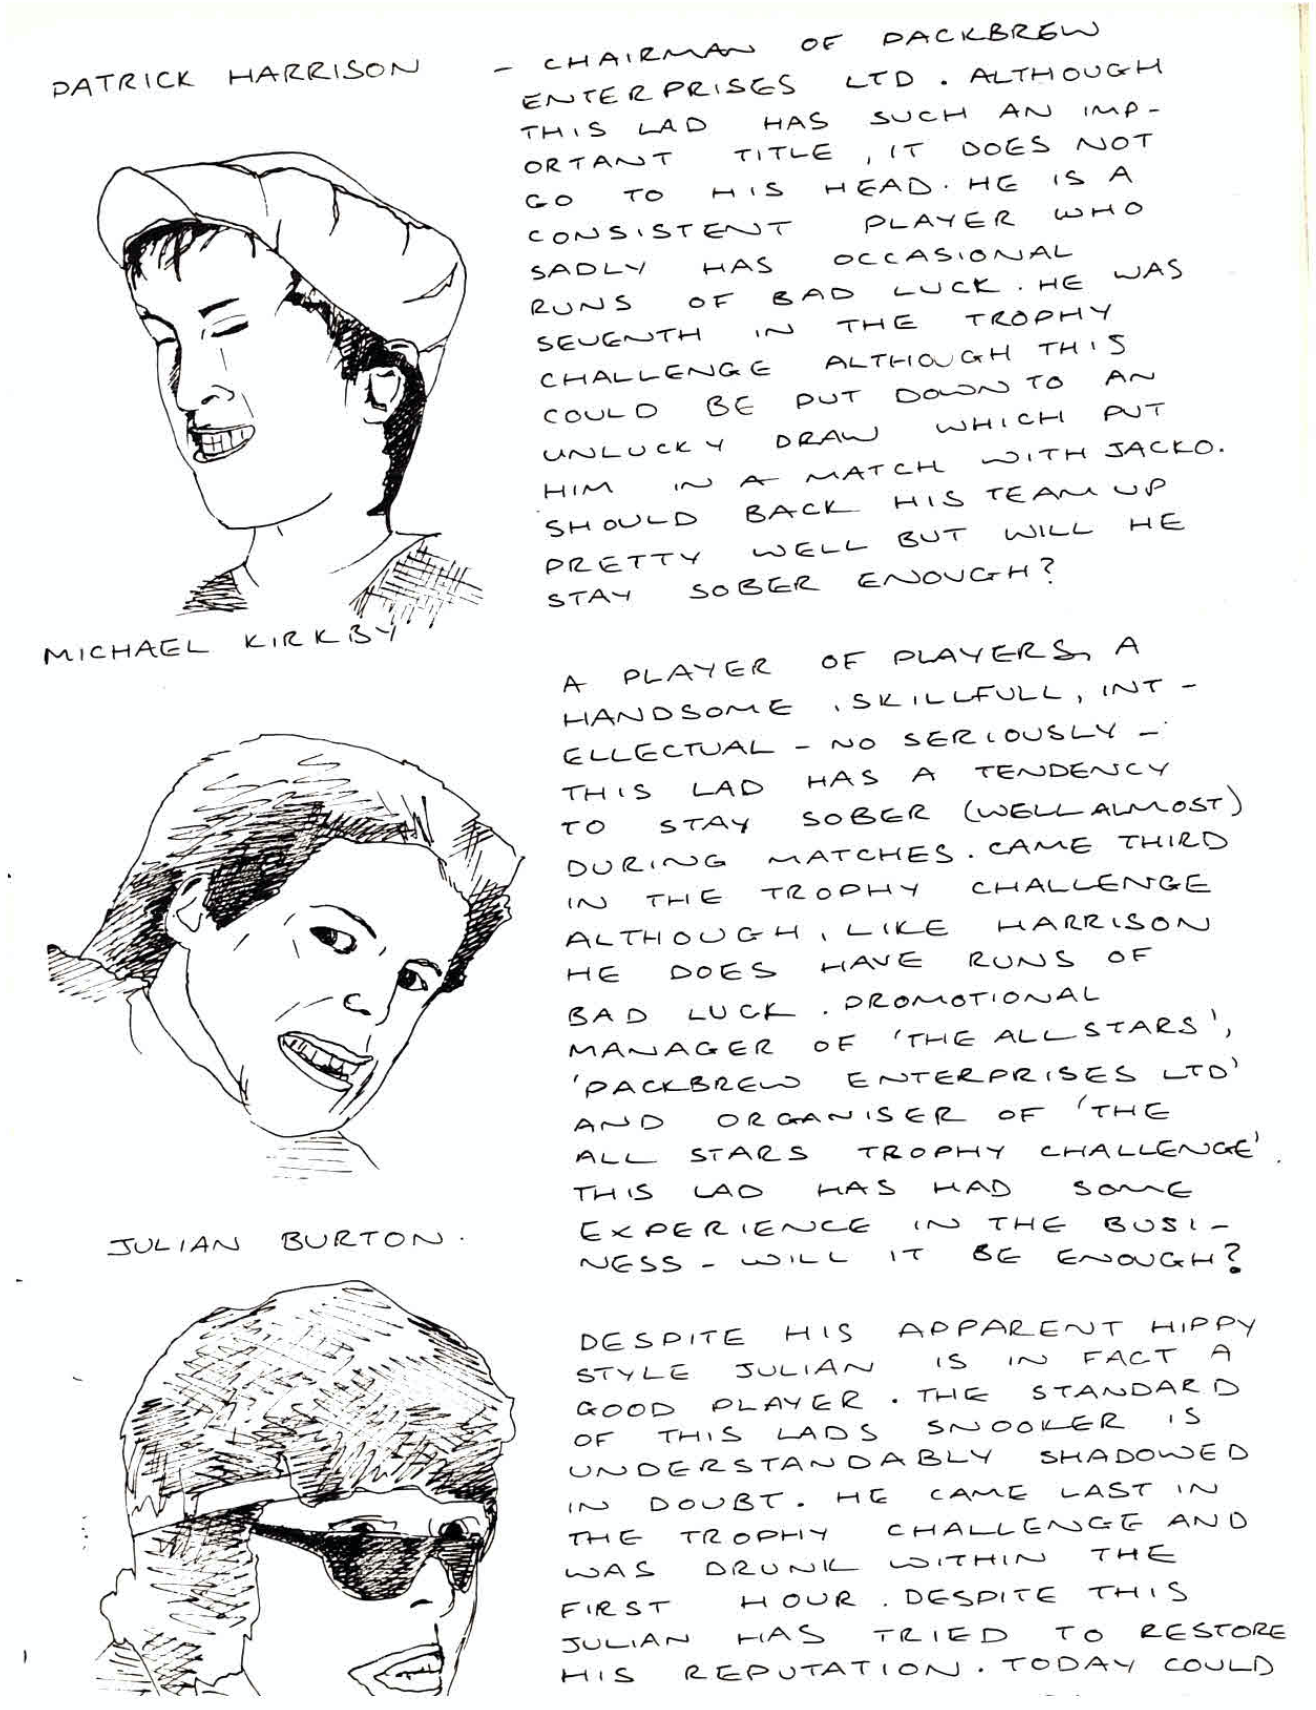 PATRICK HARRISON
- CHAIRMAN OF PACKBREW
ENTERPRISES LTD. ALTHOUGH
THIS LAD HAS SUCH AN IMP-
ORTANT TITLE, IT DOES NOT
GO TO HIS HEAD. HE IS A
CONSISTENT PLAYER WHO
SADLY HAS OCCASIONAL
RUNS OF BAD LUCK. HE WAS
SEVENTH IN THE TROPHY
CHALLENGE ALTHOUGH THIS
COULD BE PUT DOWN TO AN
UNLUCKY DRAW WHICH PUT
HIM IN A MATCH WITH JACKO.
SHOULD BACK HIS TEAM UP
PRETTY WELL BUT WILL HE
STAY SOBER ENOUGH?
MICHAEL KIRKBY
A PLAYER OF PLAYERS, A
HANDSOME, SKILLFULL, INT-
ELLECTUAL - NO SERIOUSLY -
THIS LAD HAS A TENDENCY
TO STAY SOBER (WELL ALMOST)
DURING MATCHES. CAME THIRD
IN THE TROPHY CHALLENGE
ALTHOUGH, LIKE HARRISON
HE DOES HAVE RUNS OF
BAD LUCK. PROMOTIONAL
MANAGER OF 'THE ALL STARS',
'PACKBREW ENTERPRISES LTD'
AND ORGANISER OF 'THE
ALL STARS TROPHY CHALLENGE'.
THIS LAD HAS HAD SOME
EXPERIENCE IN THE BUSI-
NESS - WILL IT BE ENOUGH?
JULIAN BURTON.
DESPITE HIS APPARENT HIPPY
STYLE JULIAN IS IN FACT A
GOOD PLAYER. THE STANDARD
OF THIS LADS SNOOKER IS
UNDERSTANDABLY SHADOWED
IN DOUBT. HE CAME LAST IN
THE TROPHY CHALLENGE AND
WAS DRUNK WITHIN THE
FIRST HOUR. DESPITE THIS
JULIAN HAS TRIED TO RESTORE
HIS REPUTATION. TODAY COULD